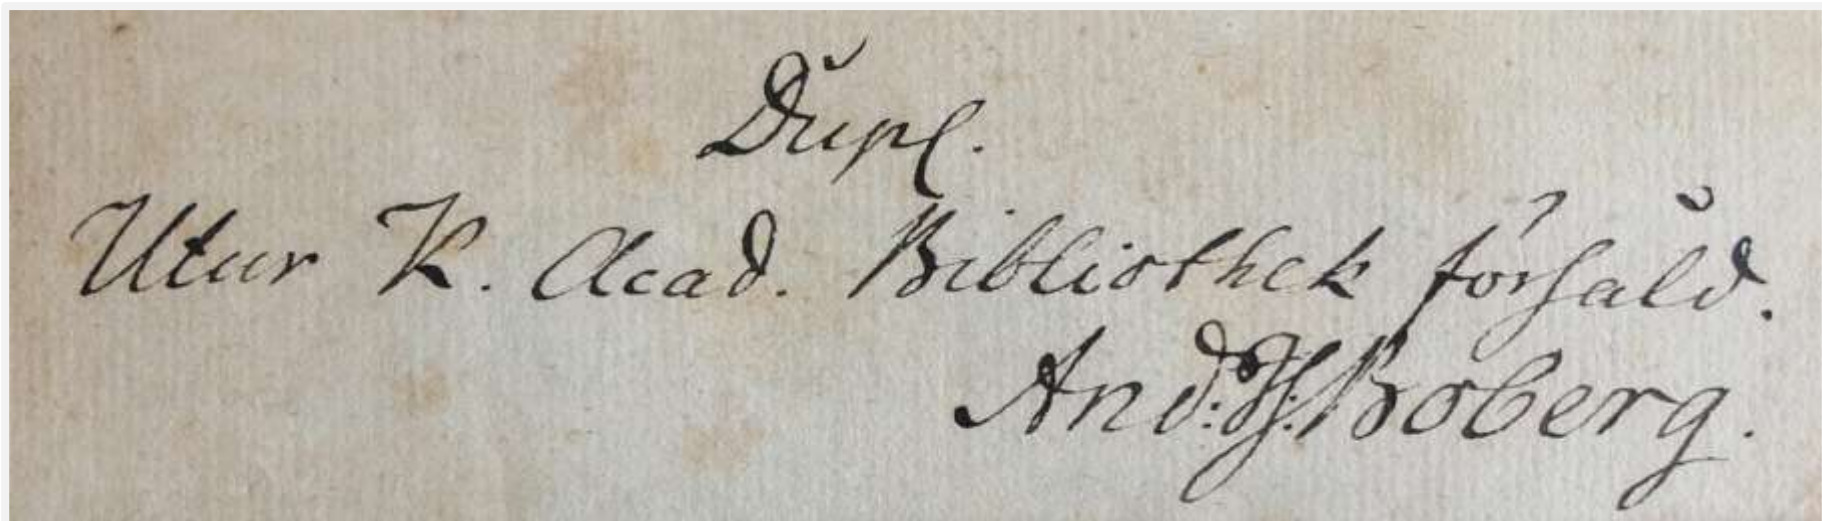 Dupl.
Utur K. Acad. Bibliothek försåld.
And: H: Boberg.